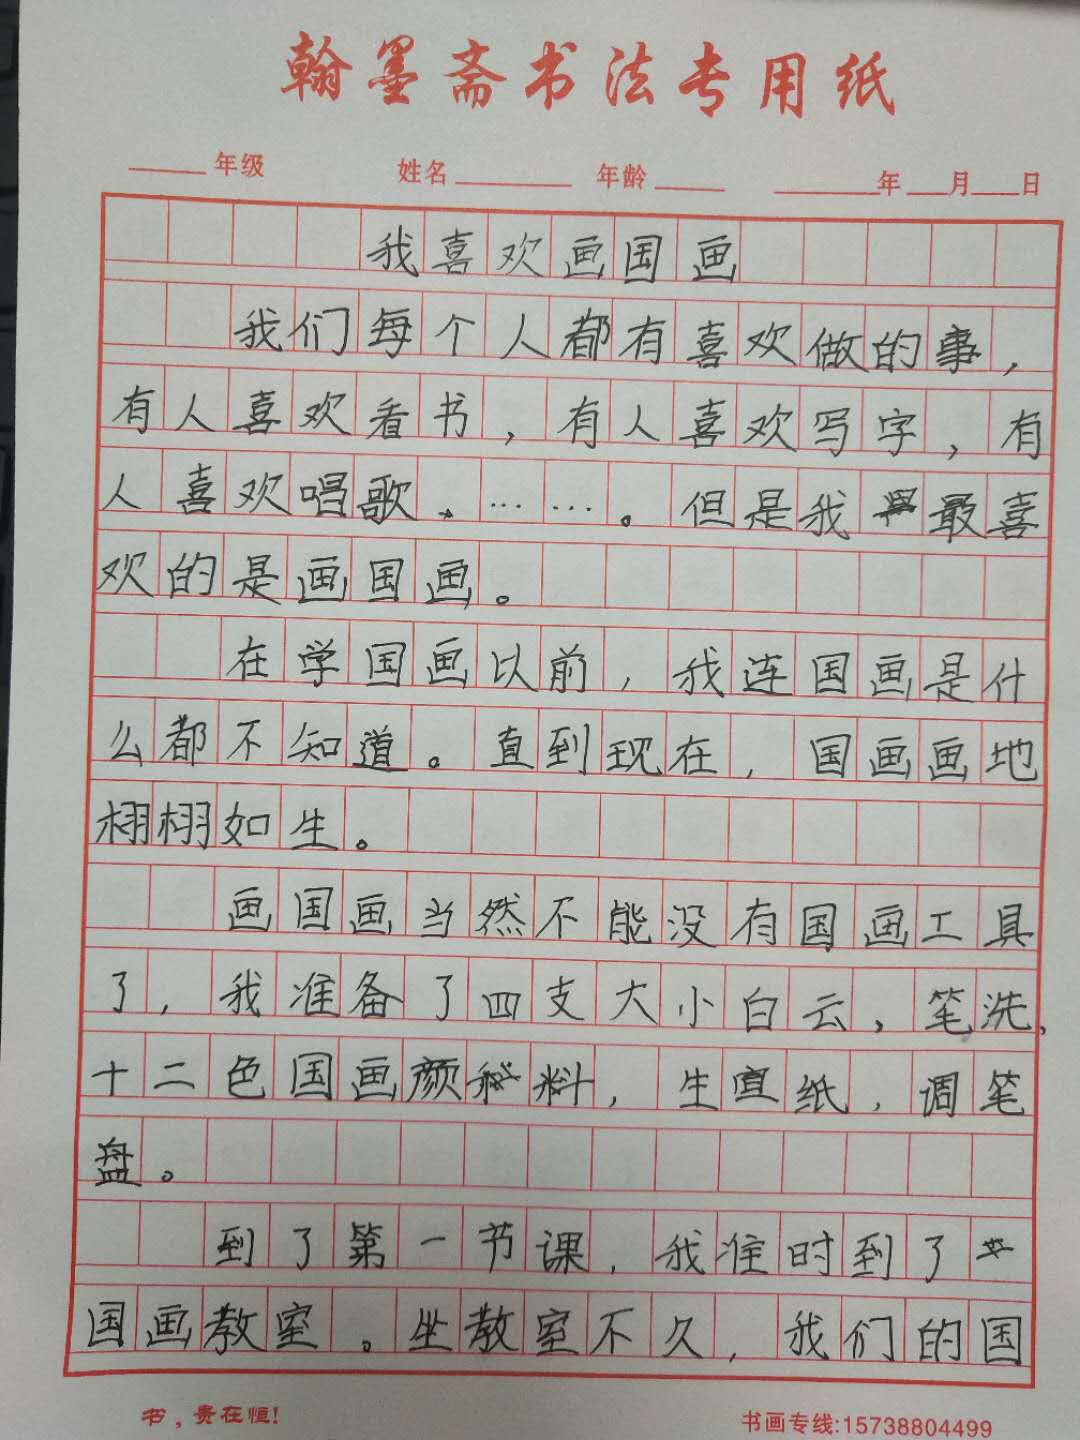 翰墨斋书法专用纸
年级 姓名 年龄 年 月 日
我喜欢画国画
我们每个人都有喜欢做的事，
有人喜欢看书，有人喜欢写字，有
人喜欢唱歌、……。但是我最喜
欢的是画国画。
在学国画以前，我连国画是什
么都不知道。直到现在，国画画地
栩栩如生。
画国画当然不能没有国画工具
了，我准备了四支大小白云，笔洗，
十二色国画颜料，生宣纸，调笔
盘。
到了第一节课，我准时到了
国画教室。坐教室不久，我们的国
书，贵在恒!
书画专线:15738804499